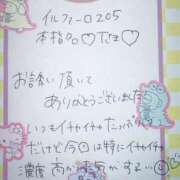 イルフィーロ205
本指名♡だよ♡
お誘い頂いて
ありがとうございました
いつもイチャイチャたっぷり
だけど今日は特にイチャイチャ
濃度高かった気がする